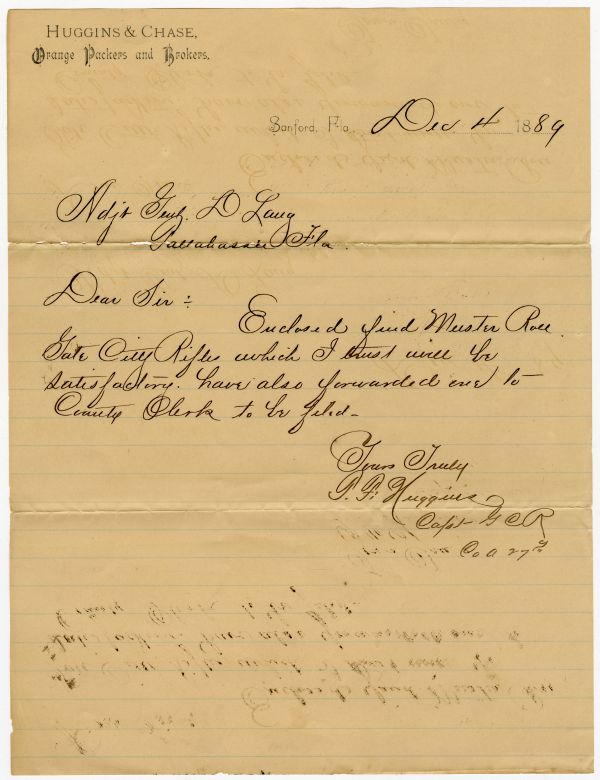 HUGGINS & CHASE,
Orange Packers and Brokers.
Sanford, Fla. Dec 4 1889
Adjt Genl. D Lang
Tallahassee Fla.
Dear Sir:
Enclosed find Muster Roll
Gate City Rifles which I trust will be
satisfactory. have also forwarded one to
County Clerk to be filed-
Yours Truly
Huggins
Capt G C R
Co A 27th